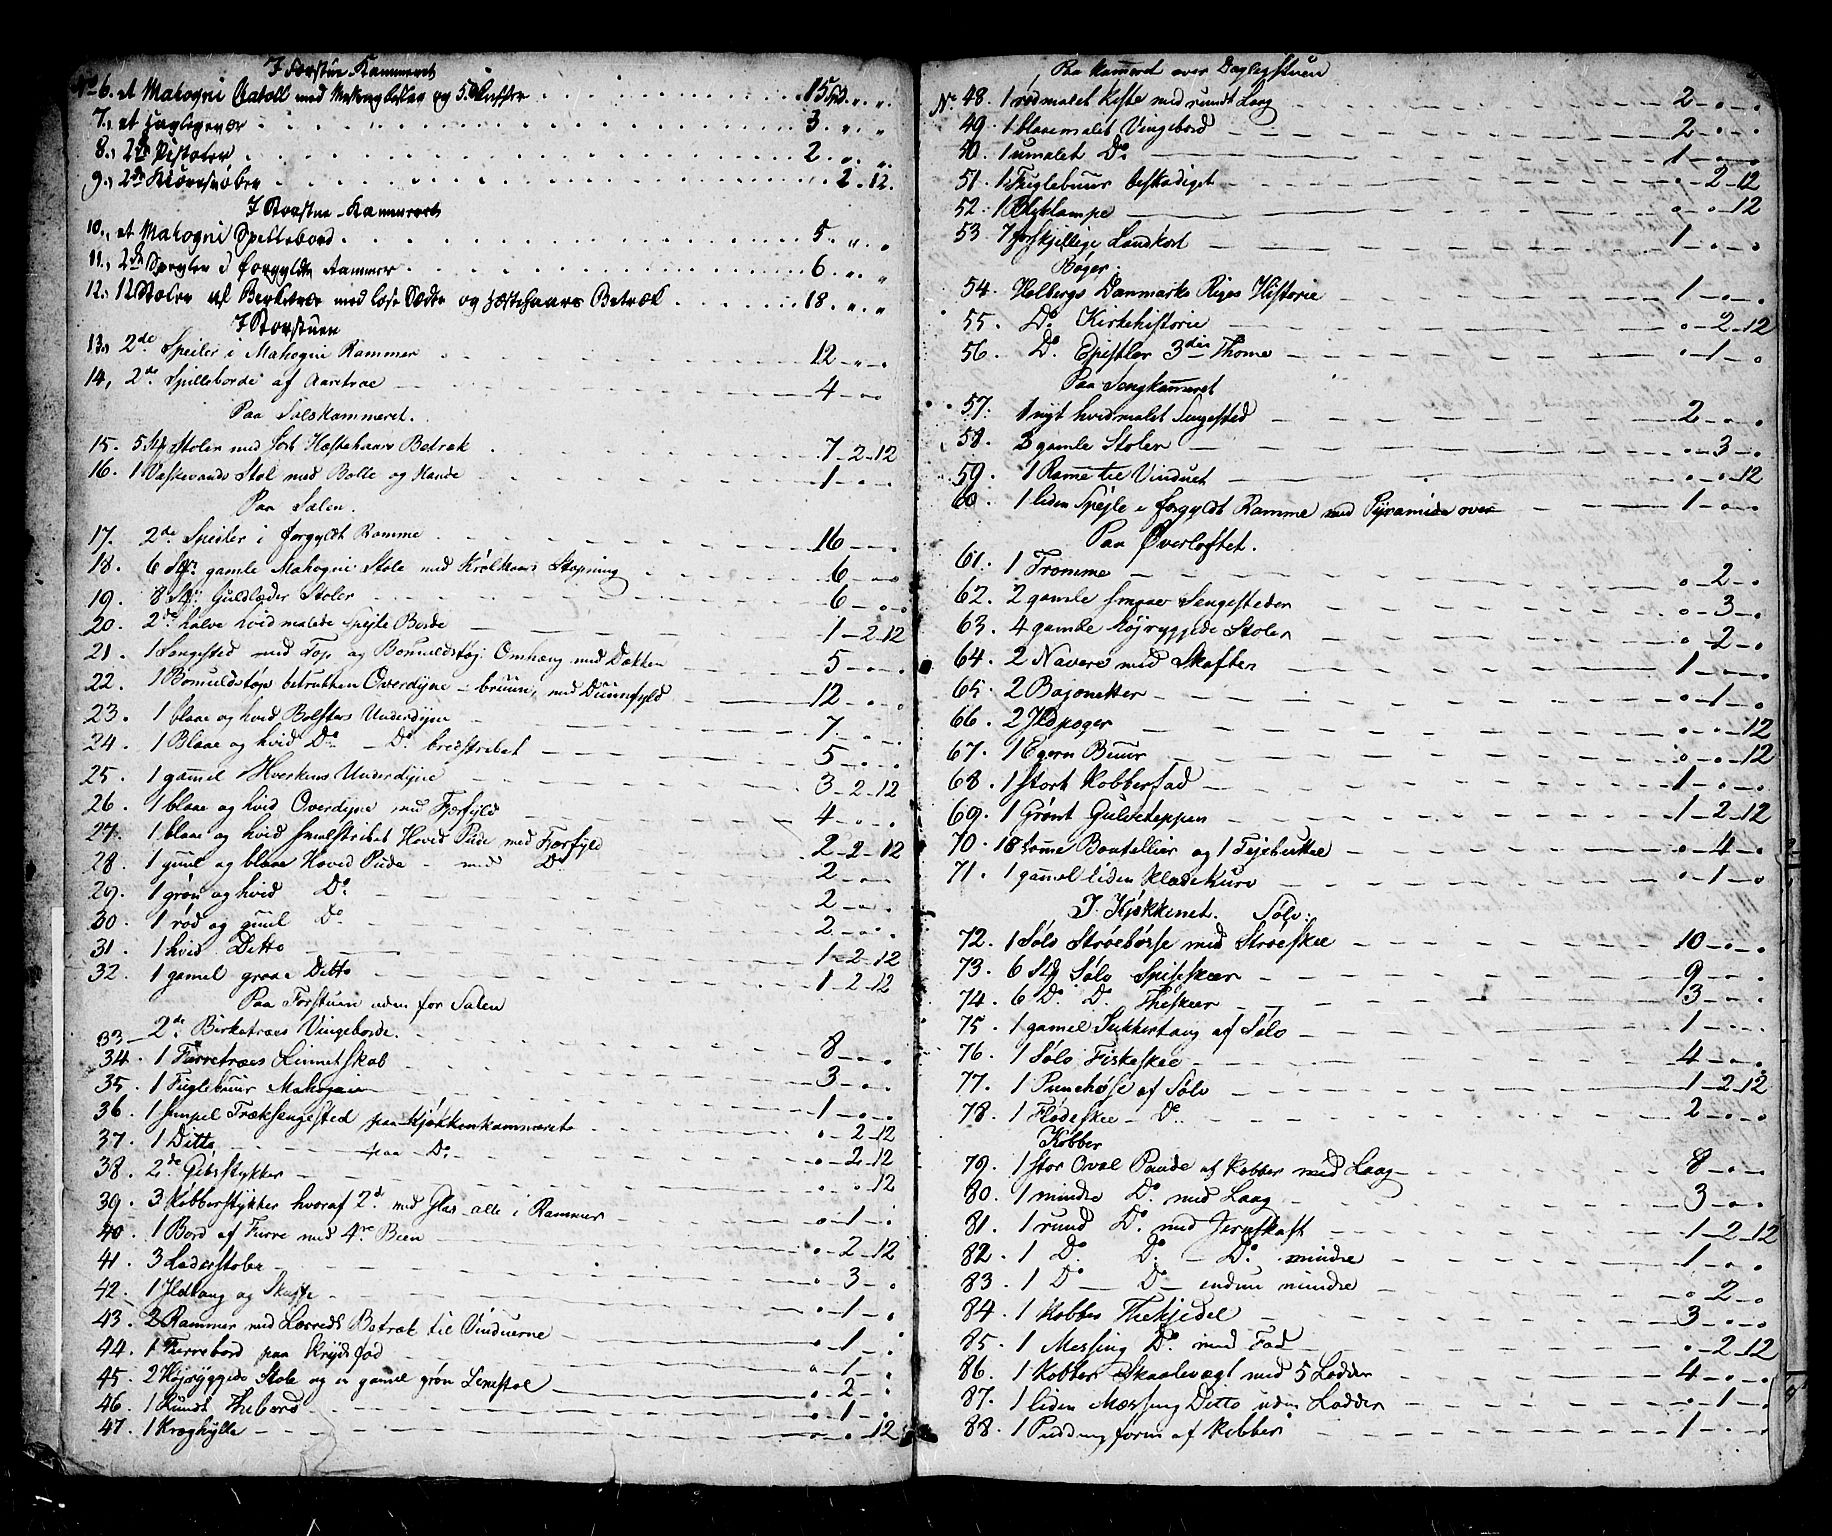 I Forstue Kammeret
No 6. et Mahogni Chatoll med og 5 Skuffer 15 Sp " "
7., et Haglgevær 3 " "
8., 2de Pistoler 2 " "
9., 2de 2 12
I Storstue Kammeret
10., et Mahogni Spillebord 5 " "
11., 2de Speyler i forgyldte Rammer 6 " "
12., 12 Stoler af Birketræ med løse Sæder og Hestehaars Betræk 18 " "
I Storstuen
13., 2de Speiler i Mahogni Rammer 12 - " - "
14, 2de Spilleborde af Oretræ 4 - o - o
Paa Salskammeret.
15. 5 Stk Stoler med Sort Hæstehaars Betræk 7 - 2 - 12
16. 1 Vaskevands Stol med Bolle og Kande 1 - o - o
Paa Salen.
17. 2de Speiler i forgyldt Ramme 16 - o - o
18. 6 Stk gamle Mahogni Stole med Krølhaars Stopning 6 - o - o
19. 8 Stk Guldlæder Stoler 6 - o - o
20. 2de halve hvidmalede Speile Borde 1 - 2 - 12
21. 1 Sengested med Top og Bomuldstøj Omhæng med Dækken 5 - o - o
22. 1 Bomuldstøjs betrukken Overdyne - bruun, med Duunfyld 12 - o - o
23. 1 blaae og hvid Bolsters Underdyne 7 - o - o
24. 1 Blaae og hvid Do - Do bredstribet 5 - o - o
25. 1 gamel Hverkens Underdyne 3 - 2 - 12
26. 1 blaae og hvid Overdyne med Fjærfyld 4 - o - o
27. 1 blaae og hvid smalstribet Hoved Pude med Fjærfyld 2 - 2 - 12
28. 1 guul og blaae Hoved Pude - med Do 2 - o - o
29. 1 grøn og hvid Do 2 - o - o
30. 1 rød og guul Do 2 - o - o
31. 1 hvid Ditto 1 - 2 - 12
32. 1 gamel graae Ditto 1 - 2 - 12
Paa Forstuen uden for Salen
33 - 2de Birketræes Vingeborde. 8 - o - o
34. 1 Furretræes Linnetskab 3 - o - o
35. 1 Fuglebuur Mahogani 1 - o - o
36. 1 simpel Træksengested paa Kjøkkenkammeret o - 2 - 12
37. 1 Ditto paa Do o - 2 - 12
38. 2de Gibsstykker o - o - 12
39. 3 Kobberstykker hvoraf 2de med Glas - alle i Rammer o - 1 - o
40. 1 Bord af Furre med 4re Been o - 2 - 12
41. 3 Læderstoler o - 3 - o
42. 1 Ildtang og Skuffe o - 1 - o
43. 2 Rammer med Lærreds Betræk til Vinduerne o - 1 - o
44. 1 Furrebord paa Krydsfod o - 1 - o
45. 2 Højryggede Stole og en gamel grøn Lænestol o - 2 - o
46. 1 Rundt Thebord o - 1 - o
47. 1 Kraghylle o - o - 12
Paa Kammeret over Dagligstuen
No 48. 1 rødmalet Kiste med rundt Laag 2 - o - o
49. 1 blaaemalet Vingebord 2 - o - o
50. 1 umalet Do. 1 - o - o
51. 1 Fuglebuur beskadiget o - 2 - 12
52. 1 Bliklampe o - o - 12
53. 7 forskjellige Landkort 1 - o - o
Bøger.
54. Holbergs Danmarks Riges Historie 1 - o - o
55. Do. Kirkehistorie o - 2 - 12
56. Do. Epistler 3die Thome o - 1 - o
Paa Sengkammeret
57. 1 nyt hvidmalet Sengested 2 - o - o
58. 3 gamle Stoler o - 3 - o
59. 1 Ramme til Vinduet o - o - 12
60. 1 liden Spejle i forgyldt Ramme med Pyramide over 1 - o - o
Paa Øverloftet.
61. 1 Tromme o - 2 - o
62. 2 gamle smaae Sengesteder o - 3 - o
63. 4 gamle højryggede Stoler o - 2 - o
64. 2 Navere med Skafter 1 - o - o
65. 2 Bajonetter o - 1 - o
66. 2 Ildpoger o - o - 12
67. 1 Egern Buur o - o - 12
68. 1 stort Kobberfad 1 - o - o
69. 1 Grønt Gulvteppen 1 - 2 - 12
70. 18 tomme Boutellier og 1 Tejebukkel o - 4 - o
71. 1 gammel liden Klædekurv o - 1 - o
I Kjøkkenet. Sølv:
72. 1 Sølv Strøebøsse med Strøeskee 10 - o - o
73. 6 Stk Sølv Spiseskeer 9 - o - o
74. 6 Do. Do. Theskeer 3 - o - o
75. 1 gamel Sukkertang af Sølv 1 - o - o
76. 1 Sølv Fiskeskee 4 - o - o
77. 1 Punchøse af Sølv 1 - 2 - 12
78. 1 Flødeskee - Do. 2 - o - o
Kobber
79. 1 stor Oval Pande af Kobber med Laag 8 - o - o
80. 1 mindre Do. med Laag 3 - o - o
81. 1 rund Do. med Jernskaft 1 - 2 - 12
82. 1 Do Do. - Do. mindre 1 - o - o
83. 1 Do - Do - endnu mindre o - 2 - o
84. 1 Kobber Thekjedel 3 - o - o
85. 1 Messing Do. med Fad o - 2 - 12
86. 1 Kobber Skaalevægt med 5 Lodder 4 - o - o
87. 1 liden Messing Ditto uden Lodder o - 1 - o
88. 1 Puddingform af Kobber 1 - o - o